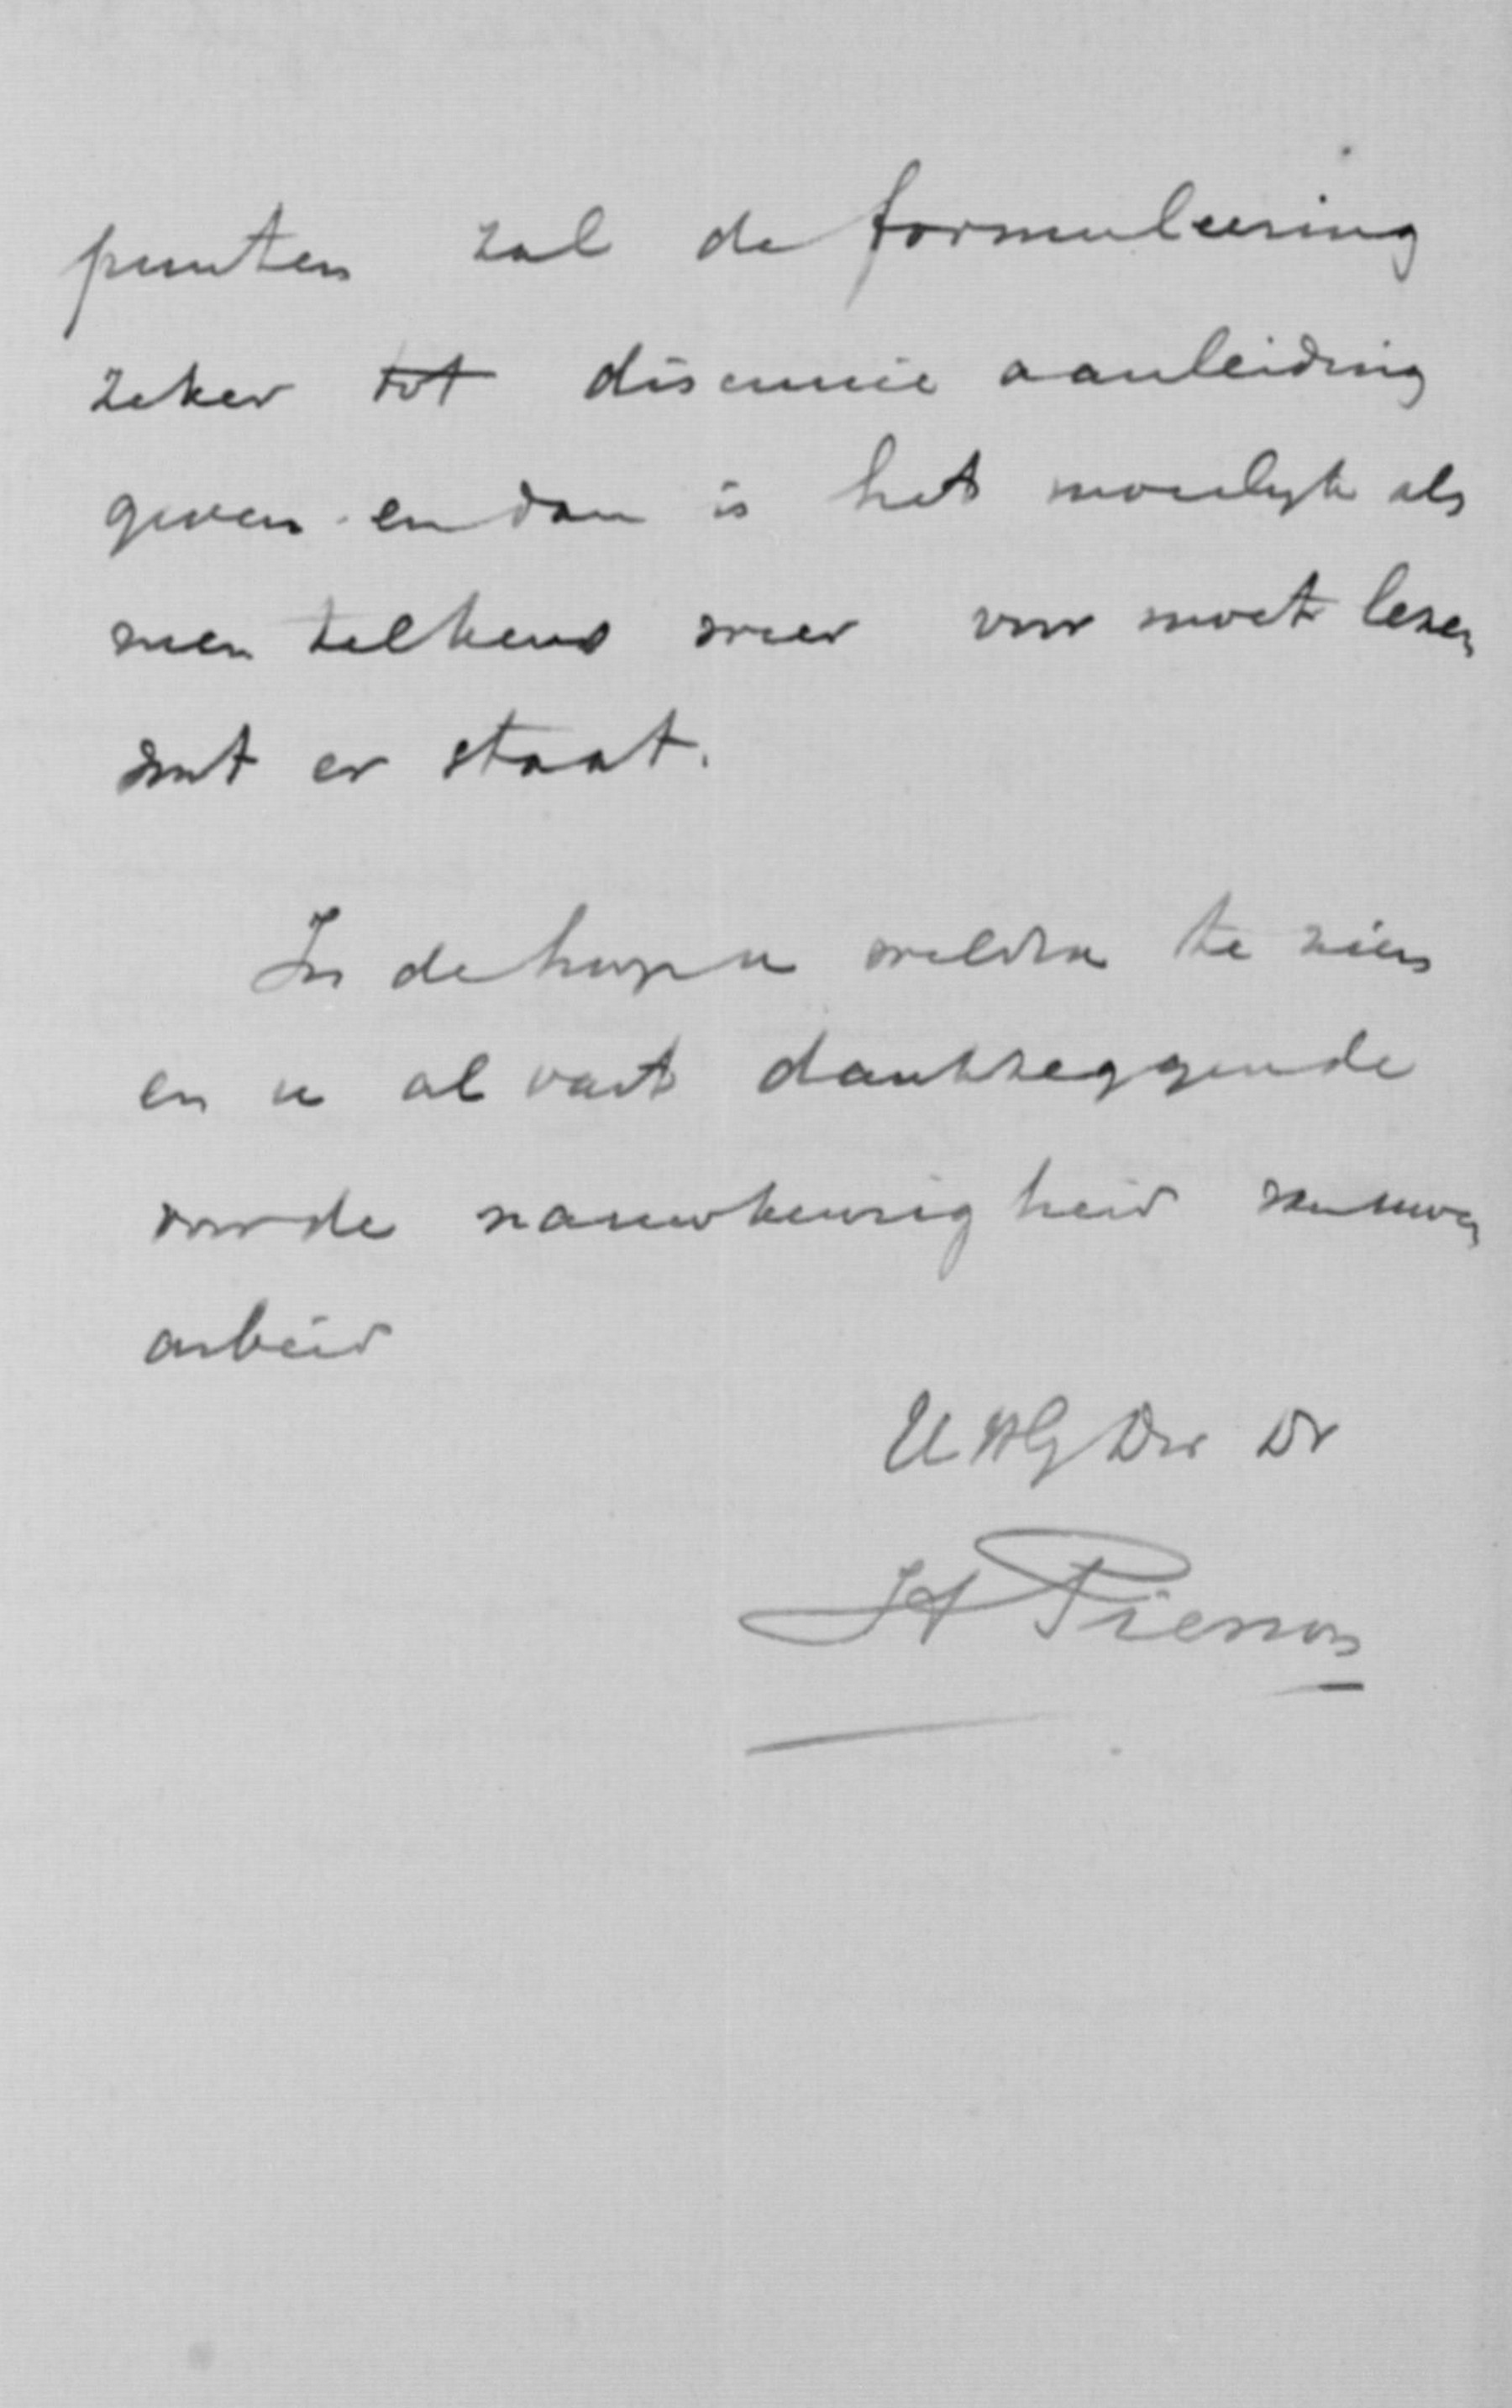 punten zal de formuleering
zeker tot discussie aanleiding
geven en dan is het moeilyk als
men telkens weer voor moet lezen
wat er staat.
In de hoop u weldra te zien
en u al vast dankzeggende
voor de nauwkeurigheid van uwen
arbeid
UWG Dw Dr
H Pierson